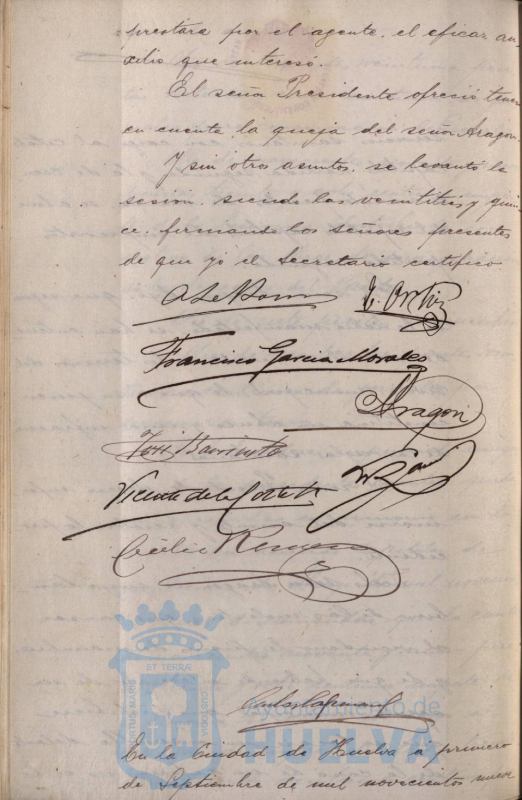 prestara por el agente, el eficaz au-
xilio que interesó.
El señor Presidente ofreció tener
en cuenta la queja del señor Aragon.
Y sin otros asuntos, se levantó la
sesion, siendo las veintitres y quin
ce, firmando los señores presentes
de que yó el Secretario certifico
Francisco Garcia Morales
Aragon
José Barrientos
Vicente de la Corte
Cecilio Romero
PORTUS MARIS ET TERRÆ CUSTODIA
Ayuntamiento de
HUELVA
En la Ciudad de Huelva a primero
de Septiembre de mil novecientos nueve